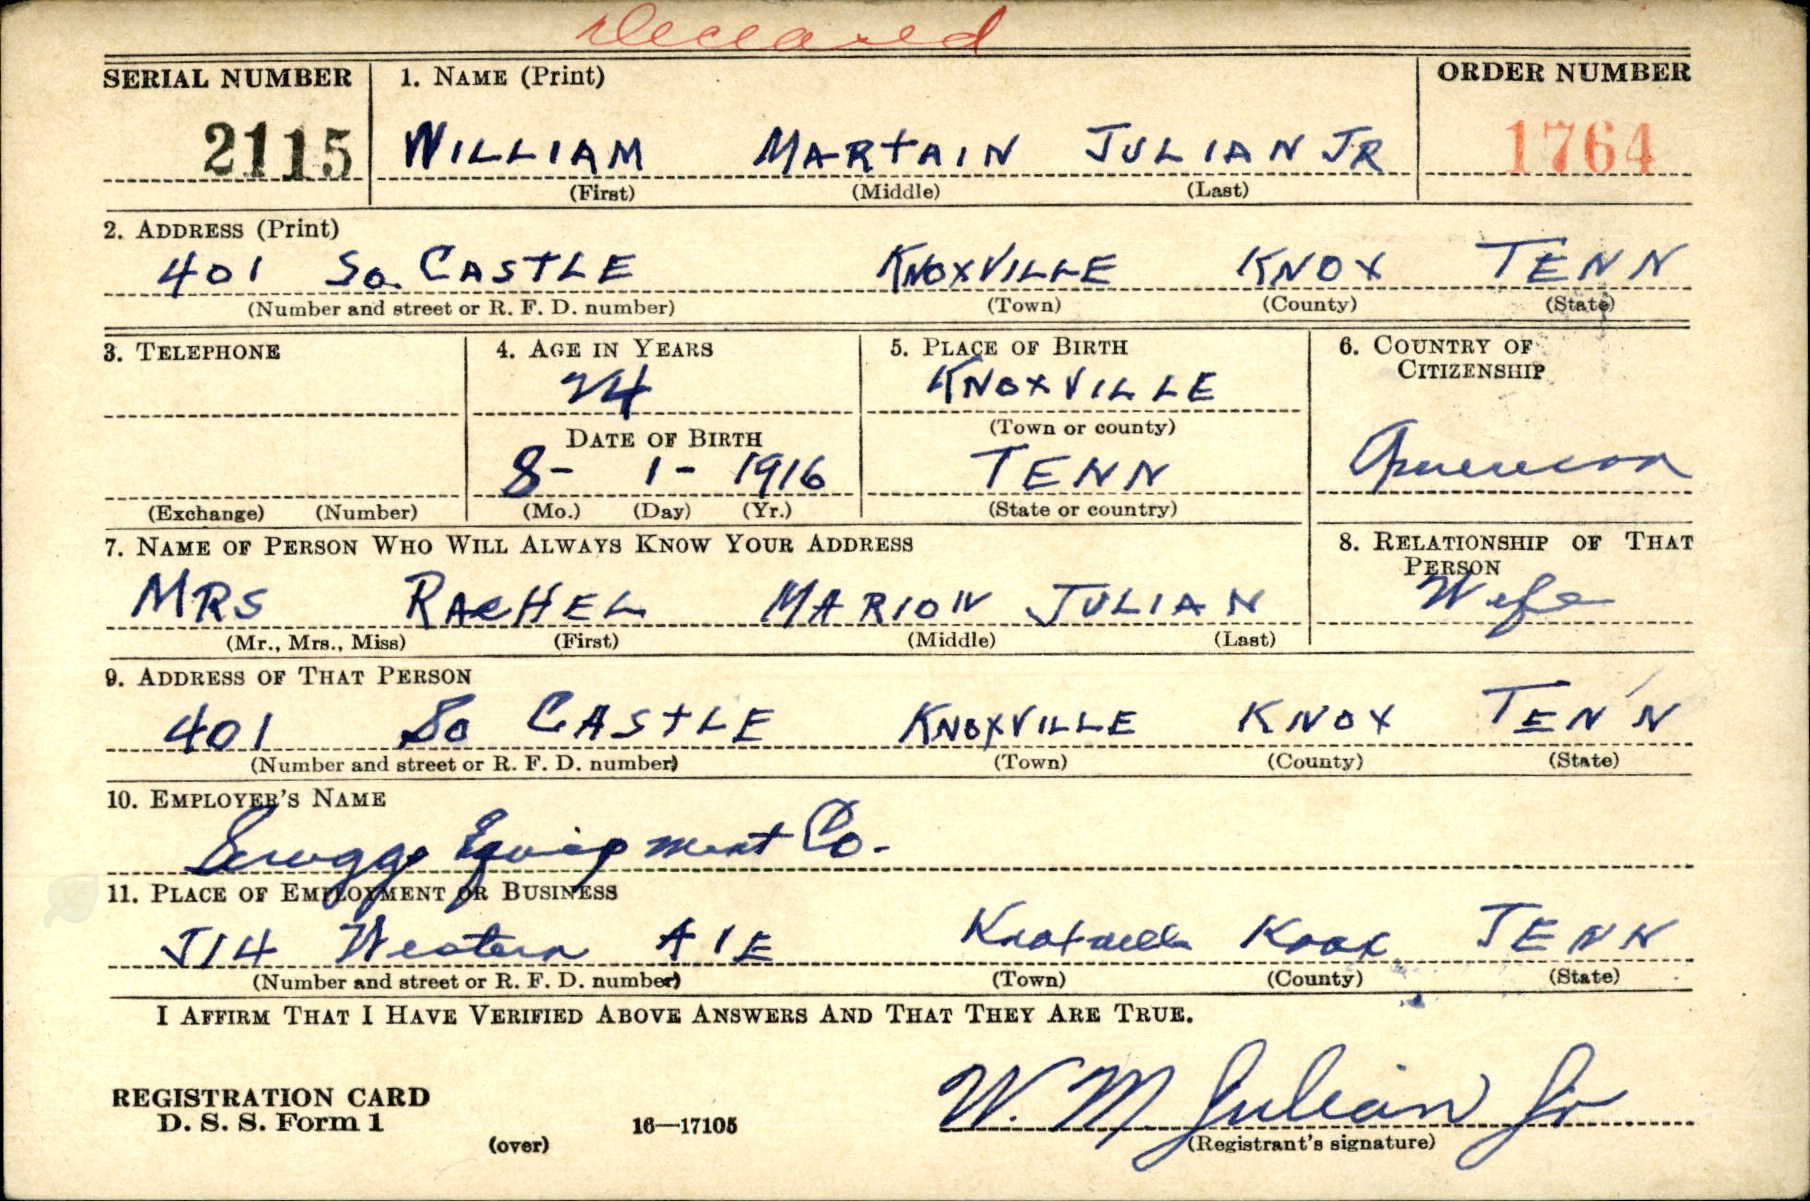 Deceased
SERIAL NUMBER 1. NAME (Print) ORDER NUMBER
2115 WILLIAM MARTAIN JULIAN JR 1764
(First) (Middle) (Last)
2. ADDRESS (Print)
401 So. CASTLE KNOXVILLE KNOX TENN
(Number and street or R. F. D. number) (Town) (County) (State)
3. TELEPHONE 4. AGE IN YEARS 5. PLACE OF BIRTH 6. COUNTRY OF CITIZENSHIP
24 KNOXVILLE
DATE OF BIRTH (Town or county)
8- 1- 1916 TENN American
(Exchange) (Number) (Mo.) (Day) (Yr.) (State or country)
7. NAME OF PERSON WHO WILL ALWAYS KNOW YOUR ADDRESS 8. RELATIONSHIP OF THAT PERSON
MRS RACHEL MARION JULIAN Wife
(Mr., Mrs., Miss) (First) (Middle) (Last)
9. ADDRESS OF THAT PERSON
401 So CASTLE KNOXVILLE KNOX TENN
(Number and street or R. F. D. number) (Town) (County) (State)
10. EMPLOYER'S NAME
Scruggs Equipment Co.
11. PLACE OF EMPLOYMENT OR BUSINESS
Western Knoxville Knox TENN
(Number and street or R. F. D. number) (Town) (County) (State)
I AFFIRM THAT I HAVE VERIFIED ABOVE ANSWERS AND THAT THEY ARE TRUE.
REGISTRATION CARD
D. S. S. Form 1 16—17105 W. M. Julian Jr
(over) (Registrant's signature)